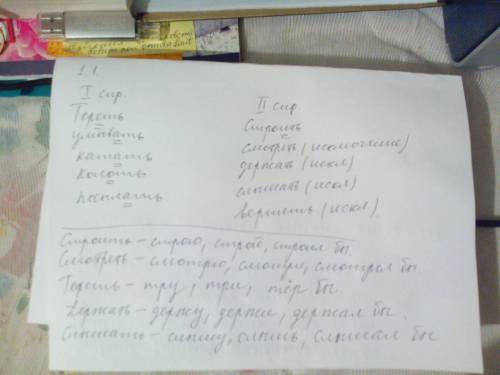 1.
I спр.
Тереть
умывать
катать
колоть
поспать
II спр.
Строить
смотреть (исключение)
держать (искл)
слышать (искл)
вертеть (искл)
Строить – строю, строй, строил бы.
Смотреть – смотрю, смотри, смотрел бы
Тереть – тру, три, тёр бы.
Держать – держу, держи, держал бы.
Слышать – слышу, слышь, слышал бы